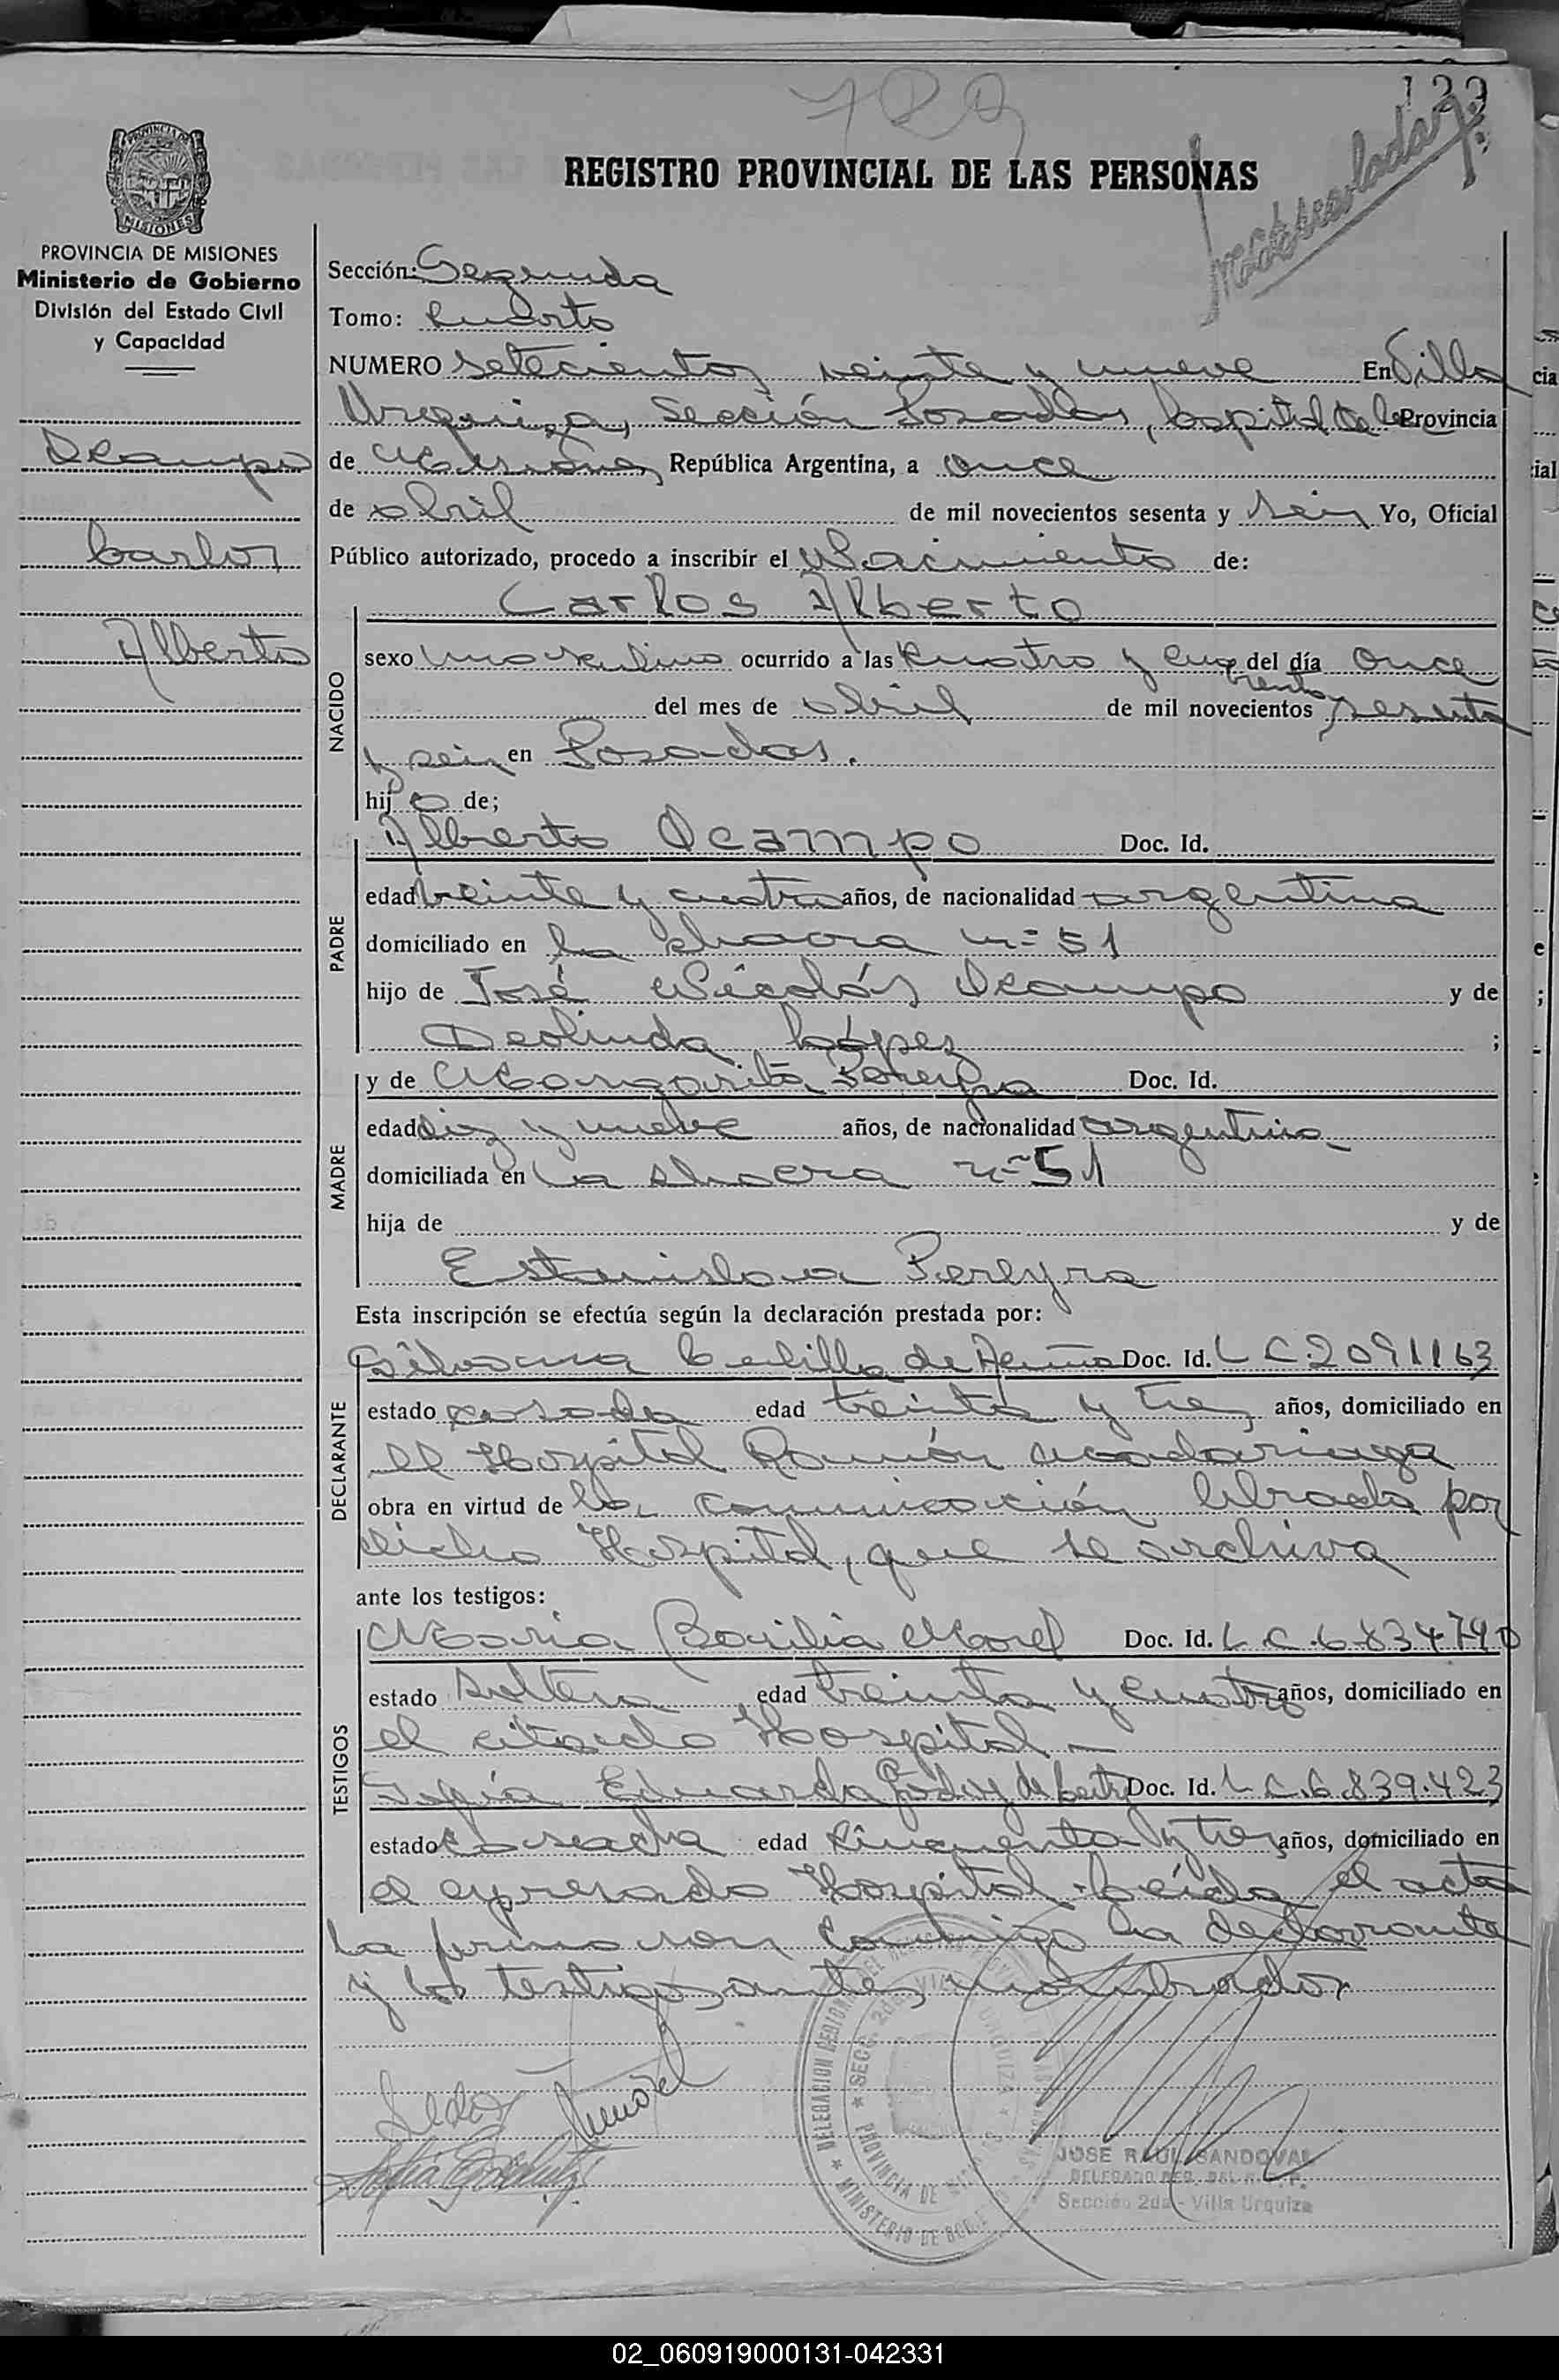 729
REGISTRO PROVINCIAL DE LAS PERSONAS
PROVINCIA DE MISIONES
Ministerio de Gobierno
División del Estado Civil
y Capacidad
Ocampo
Carlos
Alberto
Sección: Segunda
Tomo: Cuarto
NUMERO setecientos veinte y nueve En Villa
Urquiza, Sección Posadas, Capital de la Provincia
de Misiones República Argentina, a once
de abril de mil novecientos sesenta y seis Yo, Oficial
Público autorizado, procedo a inscribir el Nacimiento de:
Carlos Alberto
NACIDO
sexo masculino ocurrido a las cuatro y del día once
del mes de abril de mil novecientos sesenta
y seis en Posadas.
hijo de;
PADRE
Alberto Ocampo Doc. Id.
edad veinte y cuatro años, de nacionalidad argentina
domiciliado en la chacra nº 51
hijo de José Nicolás Ocampo y de
Deolinda López ;
MADRE
y de Margarita Pereyra Doc. Id.
edad diez y nueve años, de nacionalidad argentina
domiciliada en la chacra nº 51
hija de y de
Estanislava Pereyra
Esta inscripción se efectúa según la declaración prestada por:
DECLARANTE
de Doc. Id. L C 2091163
estado casada edad treinta y tres años, domiciliado en
el Hospital Ramón Madariaga
obra en virtud de la comunicación librada por
dicho Hospital, que se archiva
ante los testigos:
TESTIGOS
María Morel Doc. Id. L.C. 6834790
estado soltera edad treinta y cuatro años, domiciliado en
el citado Hospital
Sofía Eduarda Godoy de Doc. Id. L C.6.839.423
estado casada edad cincuenta y tres años, domiciliado en
el expresado Hospital. Leída el acta
la firma con conmigo la declarante
y los testigos antes nombrados
JOSE RAUL SANDOVAL
Sección 2da - Villa Urquiza
02_060919000131-042331